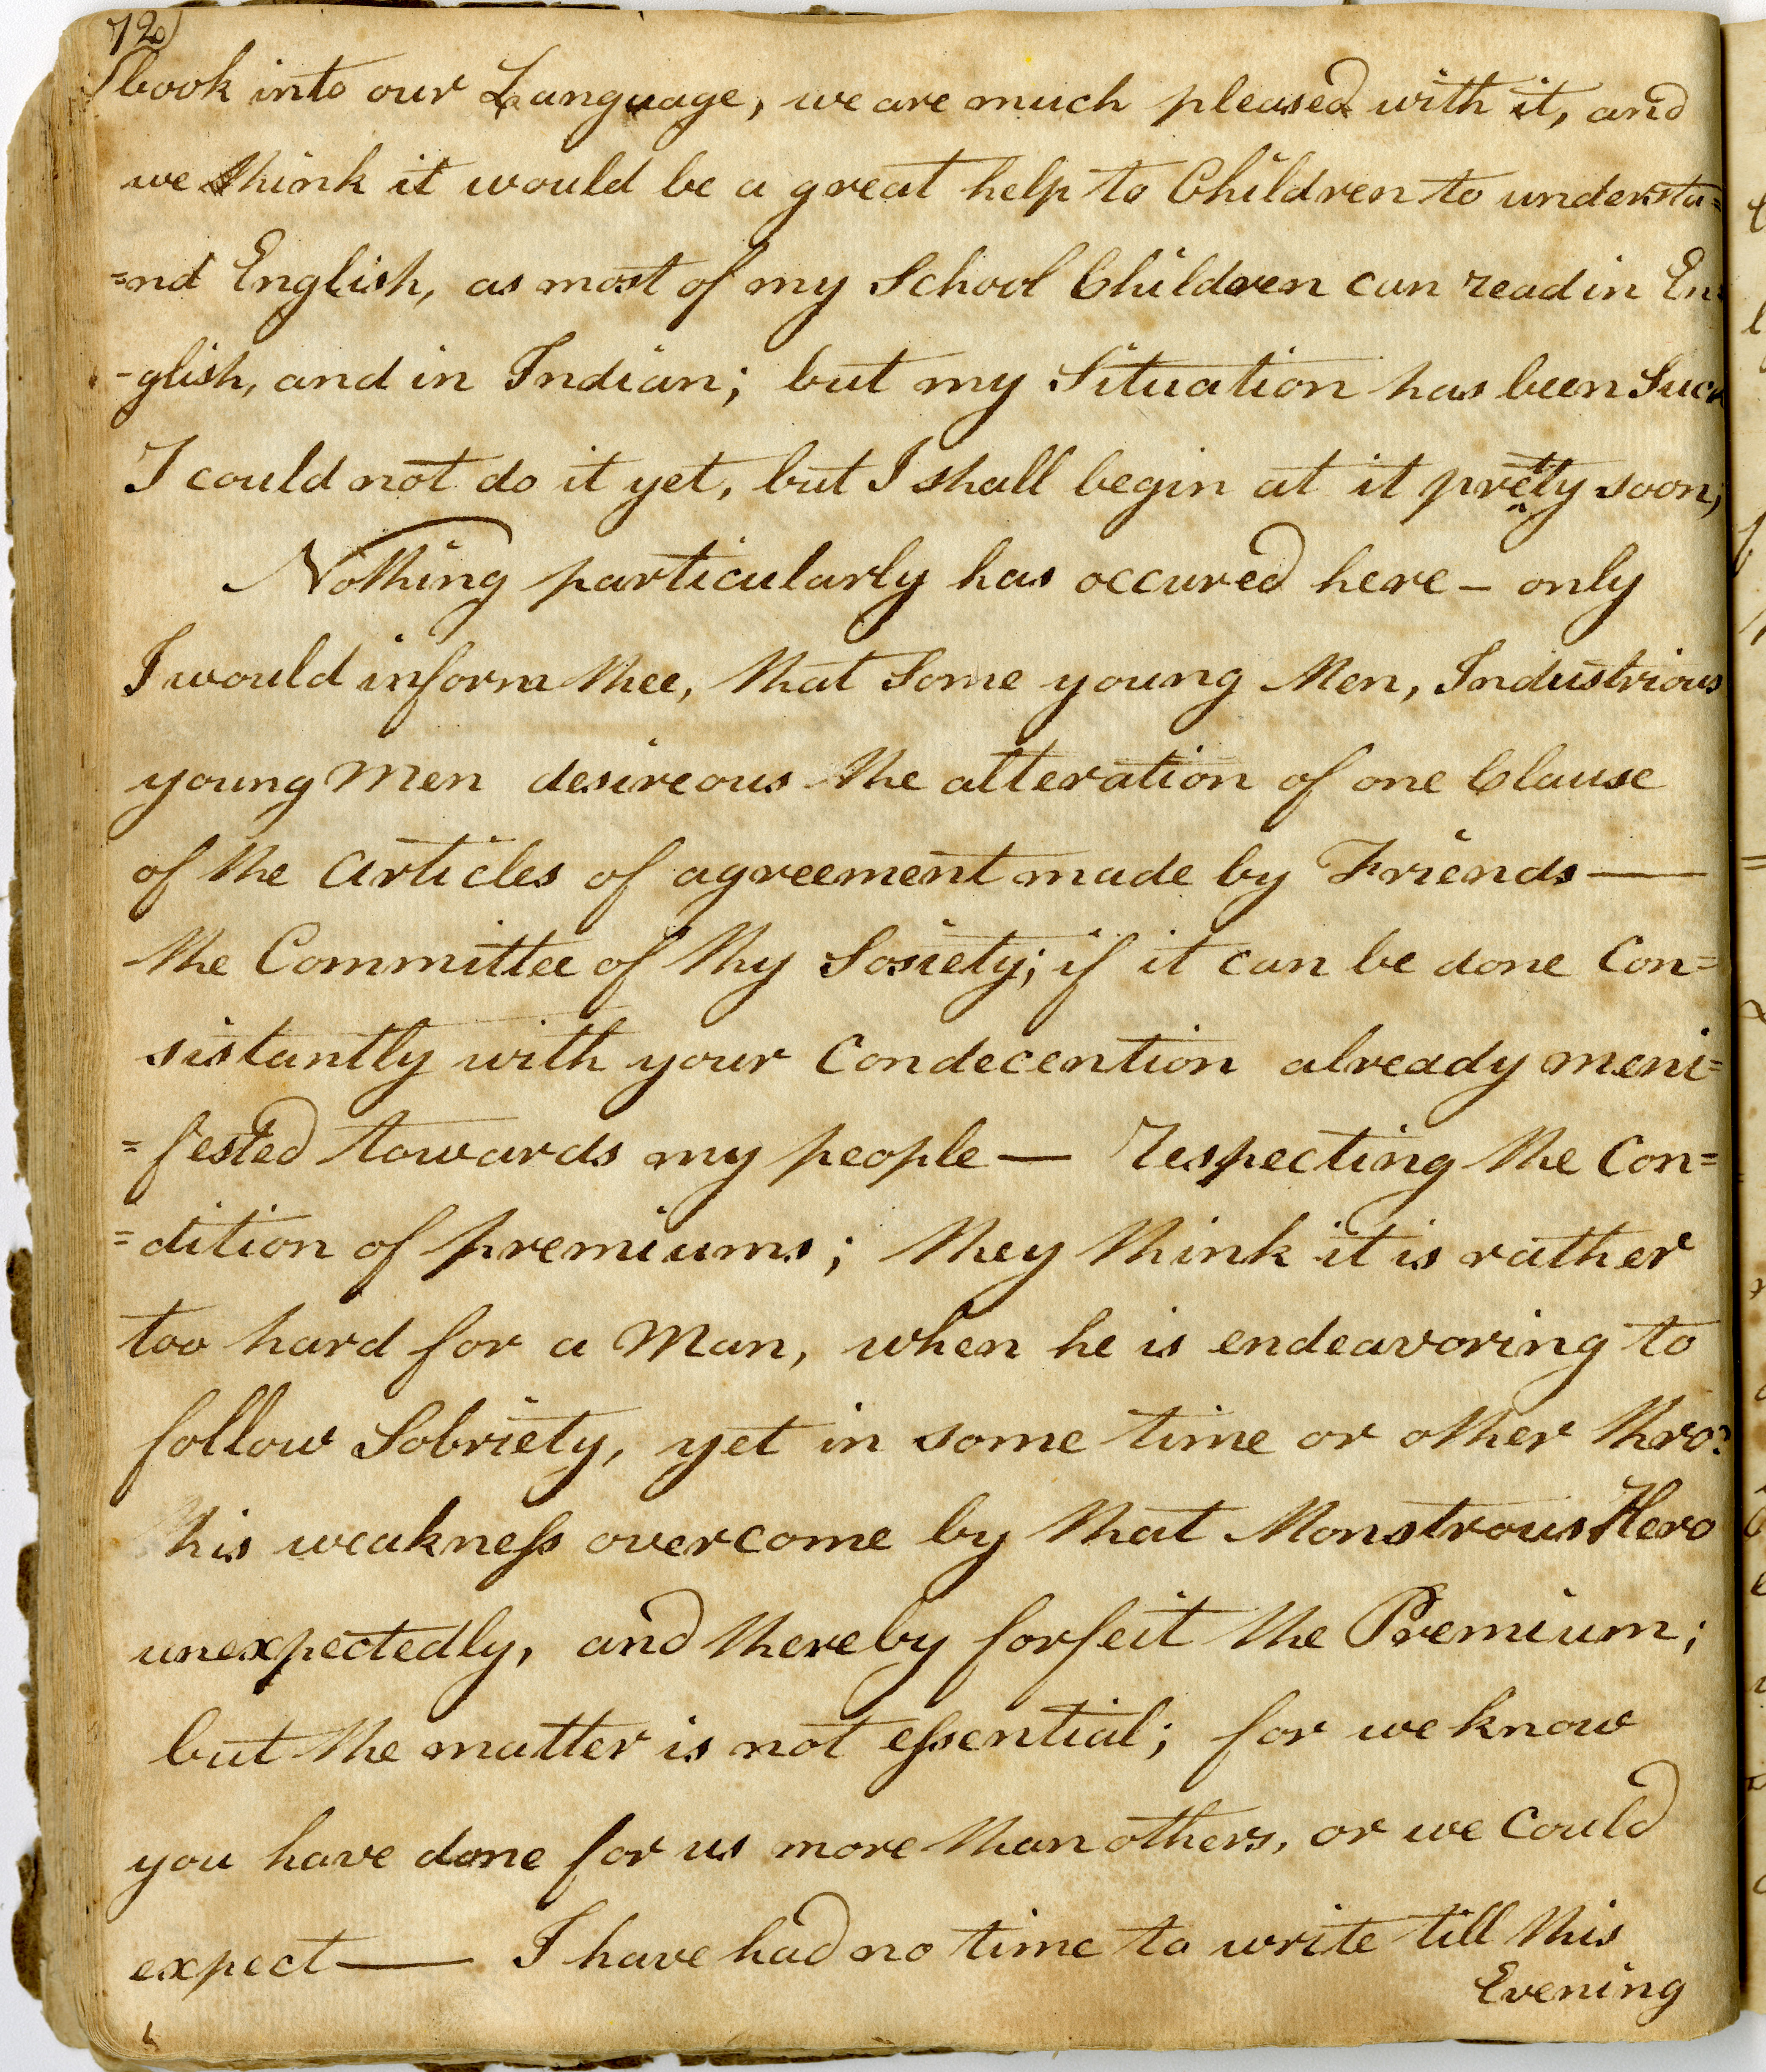 72
book into our Language, we are much pleased with it, and
we think it would be a great help to Children to understa=
=nd English, as most of my School Children can read in En
-glish, and in Indian; but my Situation has been Such
I could not do it yet, but I shall begin at it pretty soon;
Nothing particularly has occured here – only
I would inform thee, that Some young Men, Industrious
young Men desireous the alteration of one Clause
of the Articles of agreement made by Friends —
the Committee of thy Sosiety; if it can be done Con=
sistantly with your Condecention already meni=
=fested towards my people — respecting the Con=
=dition of premiums; they think it is rather
too hard for a Man, when he is endeavoring to
follow Sobriety, yet in some time or other thro:
his weakneſs overcome by that Monstrous Hero
unexpectedly, and thereby forfeit the Premium;
but the matter is not eſsential; for we know
you have done for us more than others, or we Could
expect — I have had no time to write till this
Evening